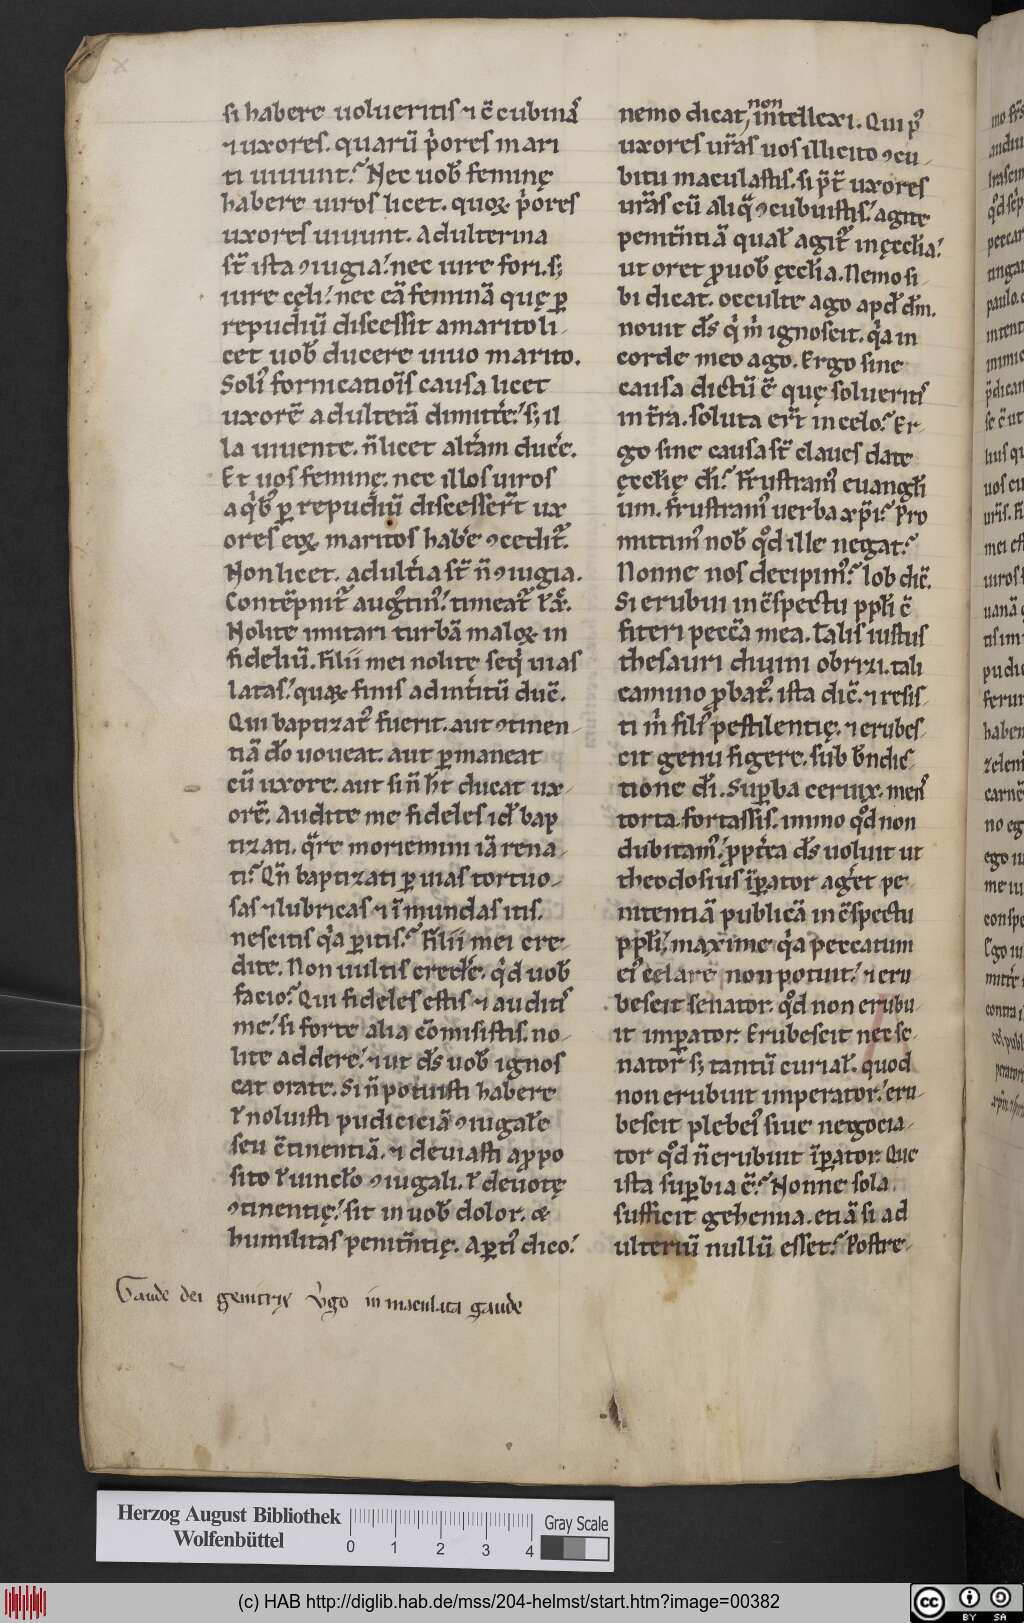 si habere uolueritis ⁊ c̄cubinas
⁊ uxores. quarū p̓ores mari
ti uiuunt. Nec uob̄ feminę
habere uiros licet. quoꝝ p̓ores
uxores uiuunt. Adulterina
st̄ ista ꝯiugia. nec iure fori. sꝫ
iure cęli. nec eā feminā quę ꝑ
repudiū discessit a marito li-
cet uob̄ ducere uiuo marito.
Soliꝰ fornicatiōis causa licet
uxorē adulterā dimittē. sꝫ il
la uiuente. n̄ licet alt̓am duc̓e.
Et uos feminę. nec illos uiros
a q̓bꝰ ꝑ repudiū discesser̄t ux
ores eoꝝ maritos hab̓e ꝯcedit̃.
Non licet. adult̓ia st̄ n̄ ꝯiugia.
Contēpnit̃ augꝰtinꝰ. timeat̃ x̄p̄c.
Nolite imitari turbā maloꝝ in
fideliū. Filii mei nolite seq̓ uias
latas. quaꝝ finis ad int̓itū duc̄.
Qui baptizatꝰ fuerit. aut ꝯtinen-
tiā dō uoueat. aut ꝑmaneat
cū uxore. aut si n̄ h̄t ducat ux-
orē. Audite me fideles id̄ bap
tizati. q̄re moriemini iā rena-
ti. Qn̄ baptizati ꝑ uias tortuo-
sas ⁊ lubricas ⁊ īmundas itis.
nescitis q̓a ꝑitis. Filii mei cre-
dite. Non uultis credē. q̓d uob̄
facio. Qui fideles estis ⁊ auditis
me. si forte alia cōmisistis. no-
lite addere. ⁊ ut d̄s uob̄ ignos
cat orate. Si n̄ potuisti habere
ł noluisti pudiciciā ꝯiugale
seu c̄tinentiā. ⁊ deuiasti a ꝓpo
sito ł uinclo ꝯiugali. ł deuotę
ꝯtinentię. sit in uob̄ dolor. &
humilitas penitn̄tię. Aꝑtiꝰ dico.
nemo dicat, non intellexi. Qui p̓
uxores ur̄as uos illicito ꝯcu-
bitu maculastis. si p̄t̄ uxores
ur̄as cū aliq̄ ꝯcubuistis. agite
penitn̄tiā qual̄ agit̃ in ęccl̄ia.
ut oret ꝓ uob̄ ęccl̄ia. Nemo si
bi dicat. occulte ago apd̄ dm̄.
nouit d̄s q̓ m̓ ignoscit. q̓a in
corde meo ago. Ergo sine
causa dictū ē quę solueritis
in t̄ra. soluta er̄t in celo. Er-
go sine causa st̄ claues date
ęccl̄ię dī. Frustramꝰ euangl̄i
um. frustramꝰ uerba xp̄i. Pro
mittimꝰ nob̄ qd̄ ille negat.
Nonne nos decipimꝰ. Iob dic̄.
Si erubui in c̄spectu ppl̄i c̄
fiteri pecc̄a mea. Talis iustus
thesauri diuini obrizi. tali
camino ꝓbatꝰ. ista dic̄. ⁊ resis-
ti m̓ filiꝰ pestilentię. ⁊ erubes-
cit genu figere. sub bn̄dic-
tione dī. Suꝑba ceruix. mens
torta. fortassis. immo qd̄ non
dubitamꝰ. ꝓpt̓ea d̄s uoluit ut
theodosius īꝑator ag̓et pe-
nitentiā publicā in c̄spectu
ppl̄i. maxime q̓a peccatum
eiꝰ celare non potuit. ⁊ eru
bescit senator. qd̄ non erubu
it imꝑator. Erubescit nec se-
nator. sꝫ tantū curial̄. quod
non erubuit imperator. eru-
bescit plebeiꝰ siue negocia-
tor qd̄ n̄ erubuit īꝑator. Que
ista suꝑbia ē. Nonne sola
sufficit gehenna. etiā si ad
ulteriū nullū esset. Postre-
Gaude dei genitrix v̓go inmaculata gaude
Herzog August Bibliothek
Wolfenbüttel
0 1 2 3 4
Gray Scale
(c) HAB http://diglib.hab.de/mss/204-helmst/start.htm?image=00382
cc BY SA